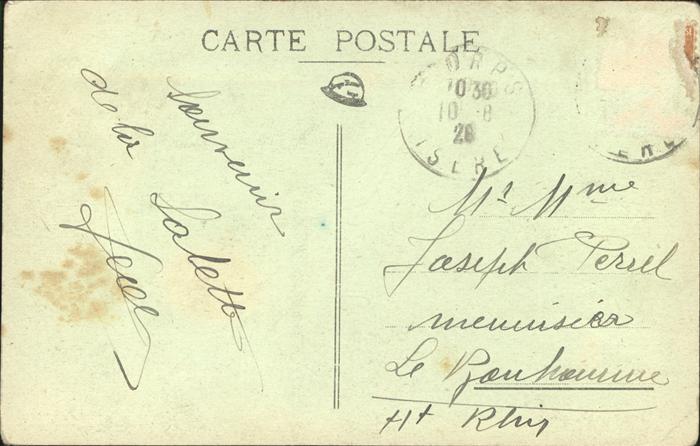 CARTE POSTALE
CORPS
10 30
10 - 8
26
ISERE
Souvenir
de la Salette
Mr Mme
Joseph Perrel
menuisier
Le Bonhomme
Ht Rhin